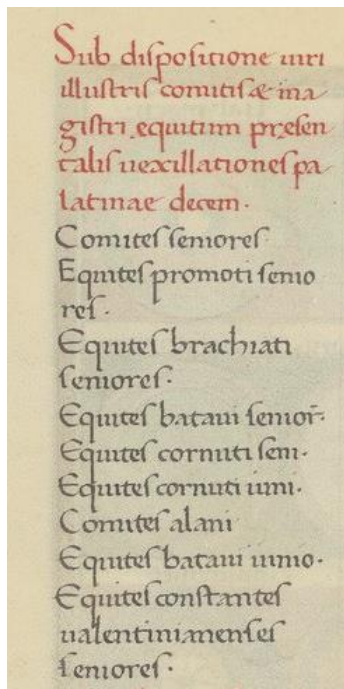 Sub dispositione uiri
illustris comitis & ma
gistri equitum præsen
talis uexillationes pa
latinae decem.
Comites seniores
Equites promoti senio
res.
Equites brachiati
seniores.
Equites bataui senior̄.
Equites cornuti sen.
Equites cornuti iuni.
Comites alani
Equites bataui iunio.
Equites constantes
ualentinianenses
seniores.